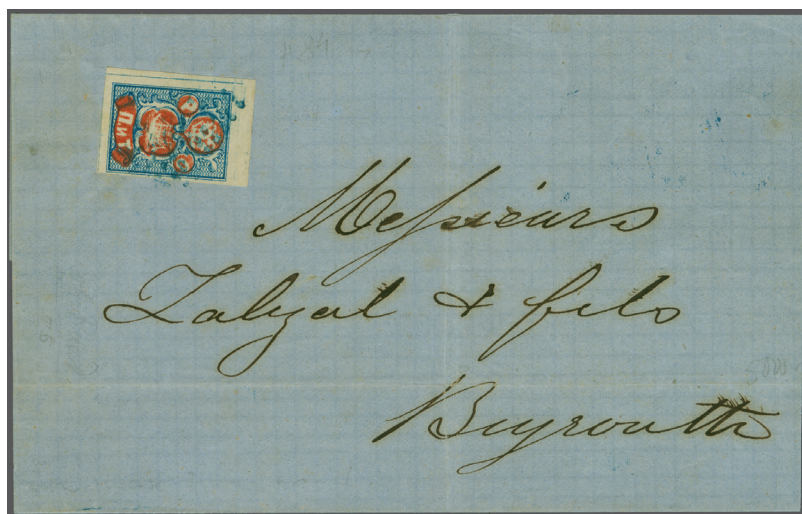 Messieurs
Zalzal & fils
Beyrouth